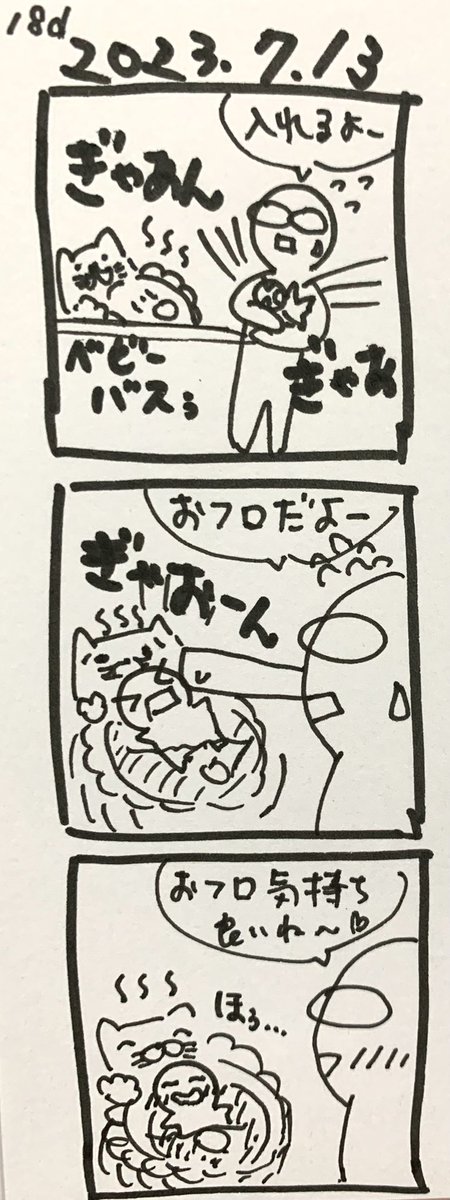 18d
2023.7.13
入れるよ〜
ぎゃあん
ベビー
バスぅ
ぎゃあ
おフロだよー
ぎゃおーん
おフロ気持ち
良いね〜♡
ほぅ...